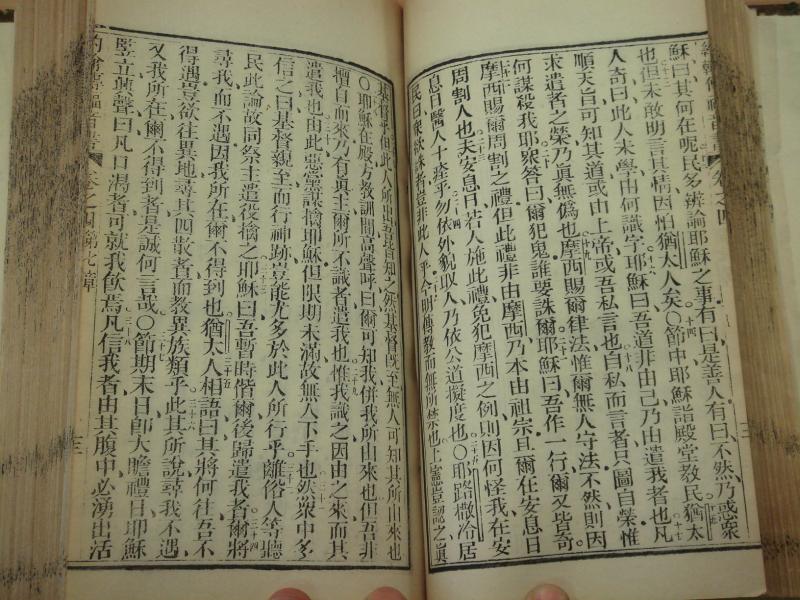 約翰傳福音書 卷之四
穌曰其何在呢民多辨論耶穌之事有曰是善人有曰不然乃惑衆
也但未敢明言其情因怕猶太人矣○節中耶穌詣殿堂敎民猶太
人奇曰此人未學由何識字耶穌曰吾道非由己乃由遣我者也凡
順天旨可知其道或由上帝或吾私言也自私而言者只圖自榮惟
求遣者之榮乃眞無僞也摩西賜爾律法惟爾無人守法不然則因
何謀殺我耶衆答曰爾犯鬼誰要誅爾耶穌曰吾作一行爾又皆奇
摩西賜爾周割之禮但此禮非由摩西乃本由祖宗且爾在安息日
周割人也夫安息日若人施此禮免犯摩西之例則因何怪我在安
息日醫人十全乎勿依外貌取人乃依公道擬度也○耶路撒冷居
民曰衆欲誅者豈非此人乎今明傳敎而無所禁也上憲豈認之眞
基督乎但此人所出吾皆知之然基督旣至無人可知其所由來也
○耶穌在殿方敎訓間高聲呼曰爾可知我併我所由來也但吾非
擅自而來乃有眞主爾所不識者遣我也惟我識之因由之來而其
遣我也由此惡黨謀擒耶穌但限期未滿故無人下手也然衆中多
信之曰基督親至而行神跡豈能尤多於此人所行乎離俗人等聽
民此論故同祭主遣役擒之耶穌曰吾暫時偕爾後歸遣我者爾將
尋我而不遇因我所在爾不得到也猶太人相語曰其將何往吾不
得遇豈欲往異地尋其四散者而敎異族類乎此其所說尋我不遇
又我所在爾不得到者是誠何言哉○節期末日卽大瞻禮日耶穌
竪立揚聲曰凡口渴者可就我飲焉凡信我者由其腹中必湧出活
約翰傳福音書 卷之四 第七章 三